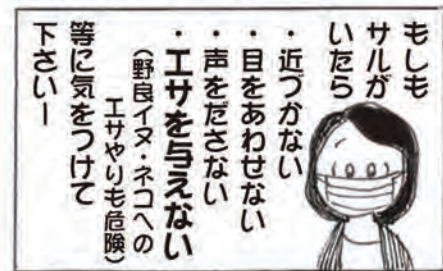 もしも
サルが
いたら
・近づかない
・目をあわせない
・声をださない
・エサを与えない
(野良イヌ・ネコへの
エサやりも危険)
等に気をつけて
下さいー